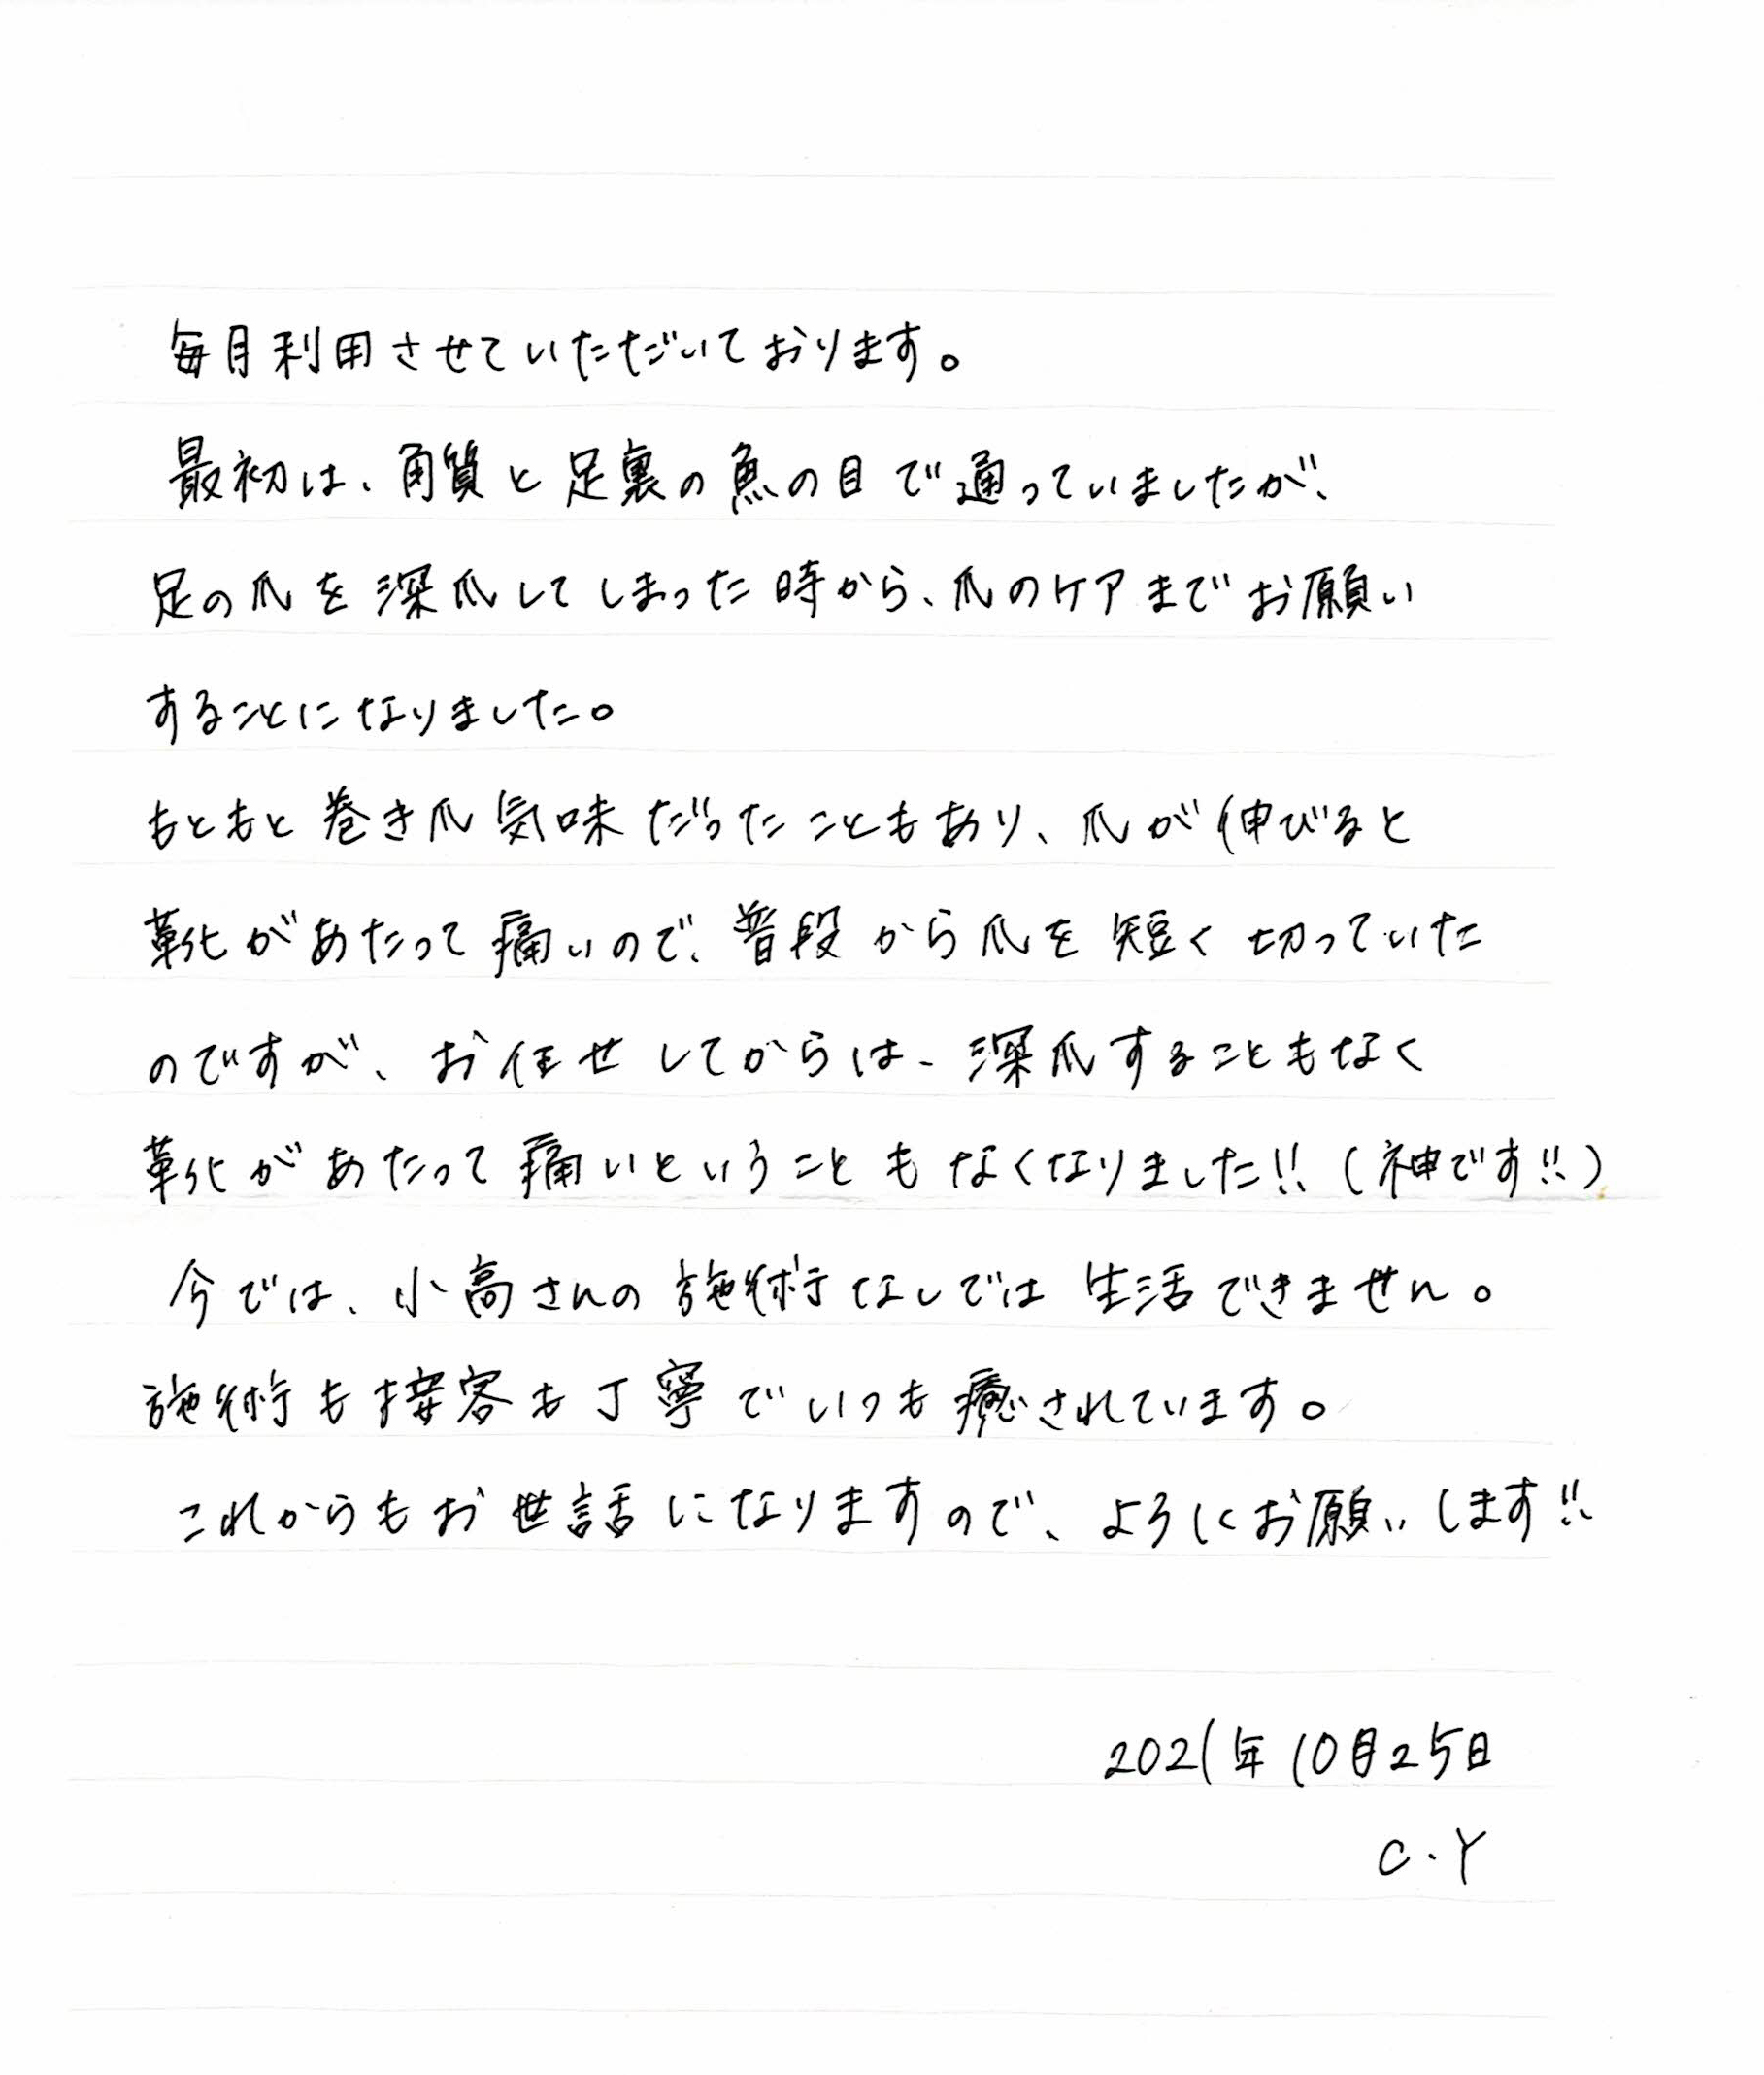 毎月利用させていただいております。
最初は、角質と足裏の魚の目で通っていましたが、
足の爪を深爪してしまった時から、爪のケアまでお願い
することになりました。
もともと巻き爪気味だったこともあり、爪が伸びると
靴があたって痛いので、普段から爪を短く切っていた
のですが、お任せしてからは、深爪することもなく
靴があたって痛いということもなくなりました!!(神です!!)
今では、小高さんの施術なしでは生活できません。
施術も接客も丁寧でいつも癒されています。
これからもお世話になりますので、よろしくお願いします!!
2021年10月25日
C.Y